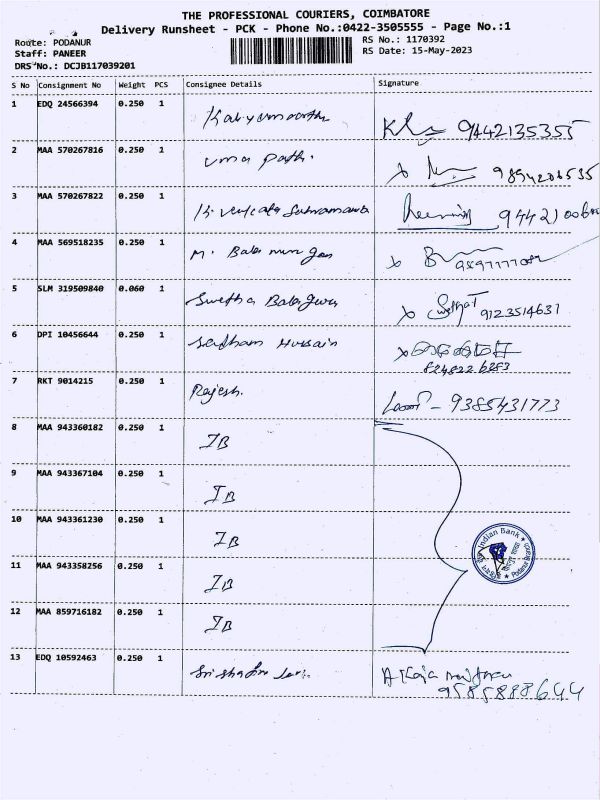 THE PROFESSIONAL COURIERS, COIMBATORE
Delivery Runsheet - PCK - Phone No.:0422-3505555 - Page No.:1
Route: PODANUR
Staff: PANEER
DRS No.: DCJB117039201
RS No.: 1170392
RS Date: 15-May-2023
S No Consignment No Weight PCS Consignee Details Signature
1 EDQ 24566394 0.250 1 9442135355
2 MAA 570267816 0.250 1 Uma pathi.
3 MAA 570267822 0.250 1
4 MAA 569518235 0.250 1 M. Bala
5 SLM 319509840 0.060 1 Swetha 9123514631
6 DPI 10456644 0.250 1 Sadham Hussain
7 RKT 9014215 0.250 1 Rajesh. 9385431773
8 MAA 943360182 0.250 1 IB
9 MAA 943367104 0.250 1 IB
10 MAA 943361230 0.250 1 IB
11 MAA 943358256 0.250 1 IB
12 MAA 859716182 0.250 1 IB
Indian Bank
13 EDQ 10592463 0.250 1
9585888644